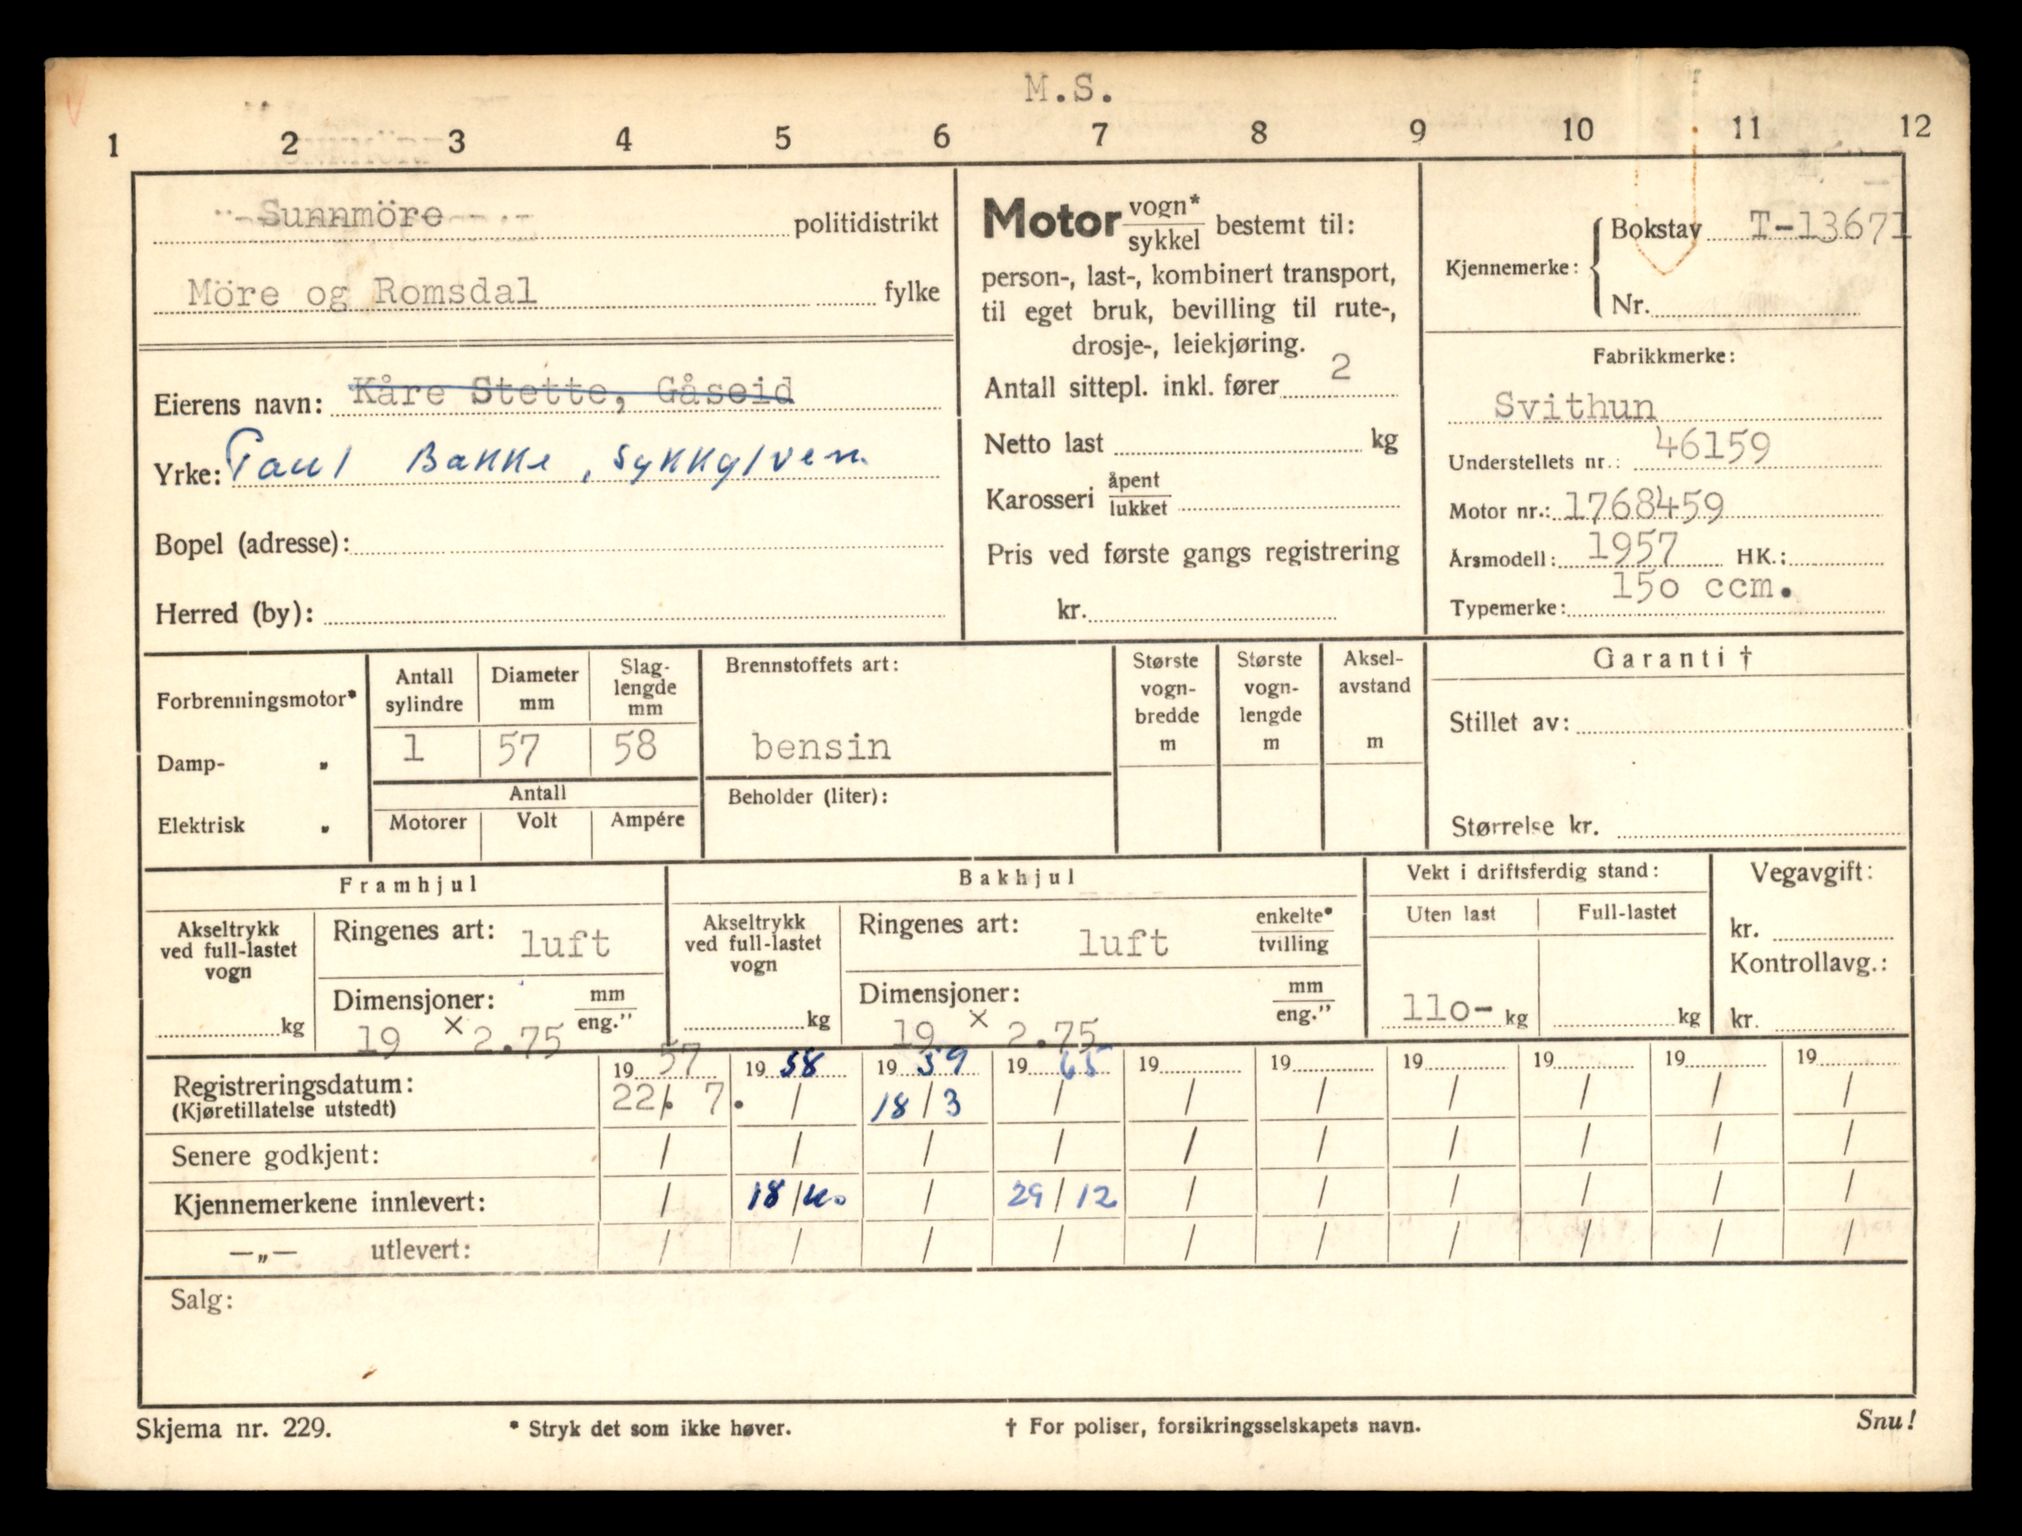 M.S.
1 2 3 4 5 6 7 8 9 10 11 12
Sunnmöre politidistrikt
Möre og Romsdal fylke
Eierens navn: Kåre Stette, Gåseid
Yrke: Paul Bakke, Sykkylven
Bopel (adresse):
Herred (by):
Motor vogn*/sykkel bestemt til:
person-, last-, kombinert transport,
til eget bruk, bevilling til rute-,
drosje-, leiekjøring.
Antall sittepl. inkl. fører 2
Netto last kg
Karosseri åpent/lukket
Pris ved første gangs registrering
kr.
Kjennemerke: { Bokstav T-13671
Nr.
Fabrikkmerke:
Svithun
Understellets nr.: 46159
Motor nr.: 1768459
Årsmodell: 1957 HK.:
Typemerke: 150 ccm.
Forbrenningsmotor*
Damp- "
Elektrisk "
Antall sylindre Diameter mm Slag-lengde mm
1 57 58
Antall
Motorer Volt Ampére
Brennstoffets art:
bensin
Beholder (liter):
Største vogn-bredde m
Største vogn-lengde m
Aksel-avstand m
Garanti †
Stillet av:
Størrelse kr.
Framhjul
Akseltrykk ved full-lastet vogn
kg
Ringenes art: luft
Dimensjoner: mm/eng."
19 x 2.75
Bakhjul
Akseltrykk ved full-lastet vogn
kg
Ringenes art: luft enkelte*/tvilling
Dimensjoner: mm/eng."
19 x 2.75
Vekt i driftsferdig stand:
Uten last Full-lastet
110- kg kg
Vegavgift:
kr.
Kontrollavg.:
kr.
19 57 19 58 19 59 19 65 19 19 19 19 19 19
Registreringsdatum: 22/. 7. / 18/3 / / / / / / /
(Kjøretillatelse utstedt)
Senere godkjent: / / / / / / / / / /
Kjennemerkene innlevert: / 18/ / 29/12 / / / / / /
—„— utlevert: / / / / / / / / / /
Salg:
Skjema nr. 229. * Stryk det som ikke høver. † For poliser, forsikringsselskapets navn. Snu!